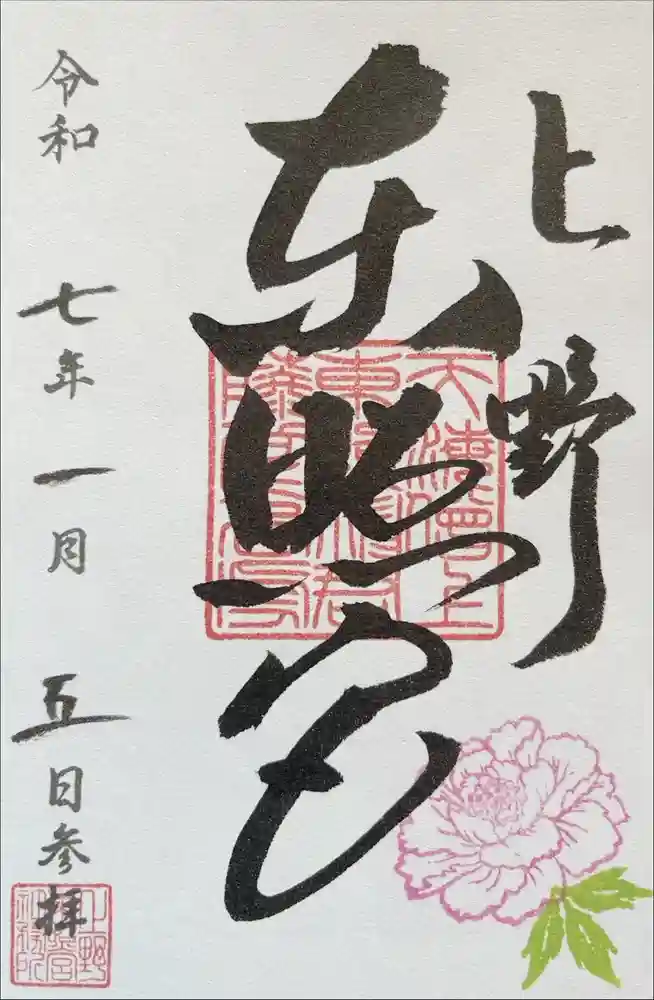 上野
東照宮
令和 七年 一月 五日参拝